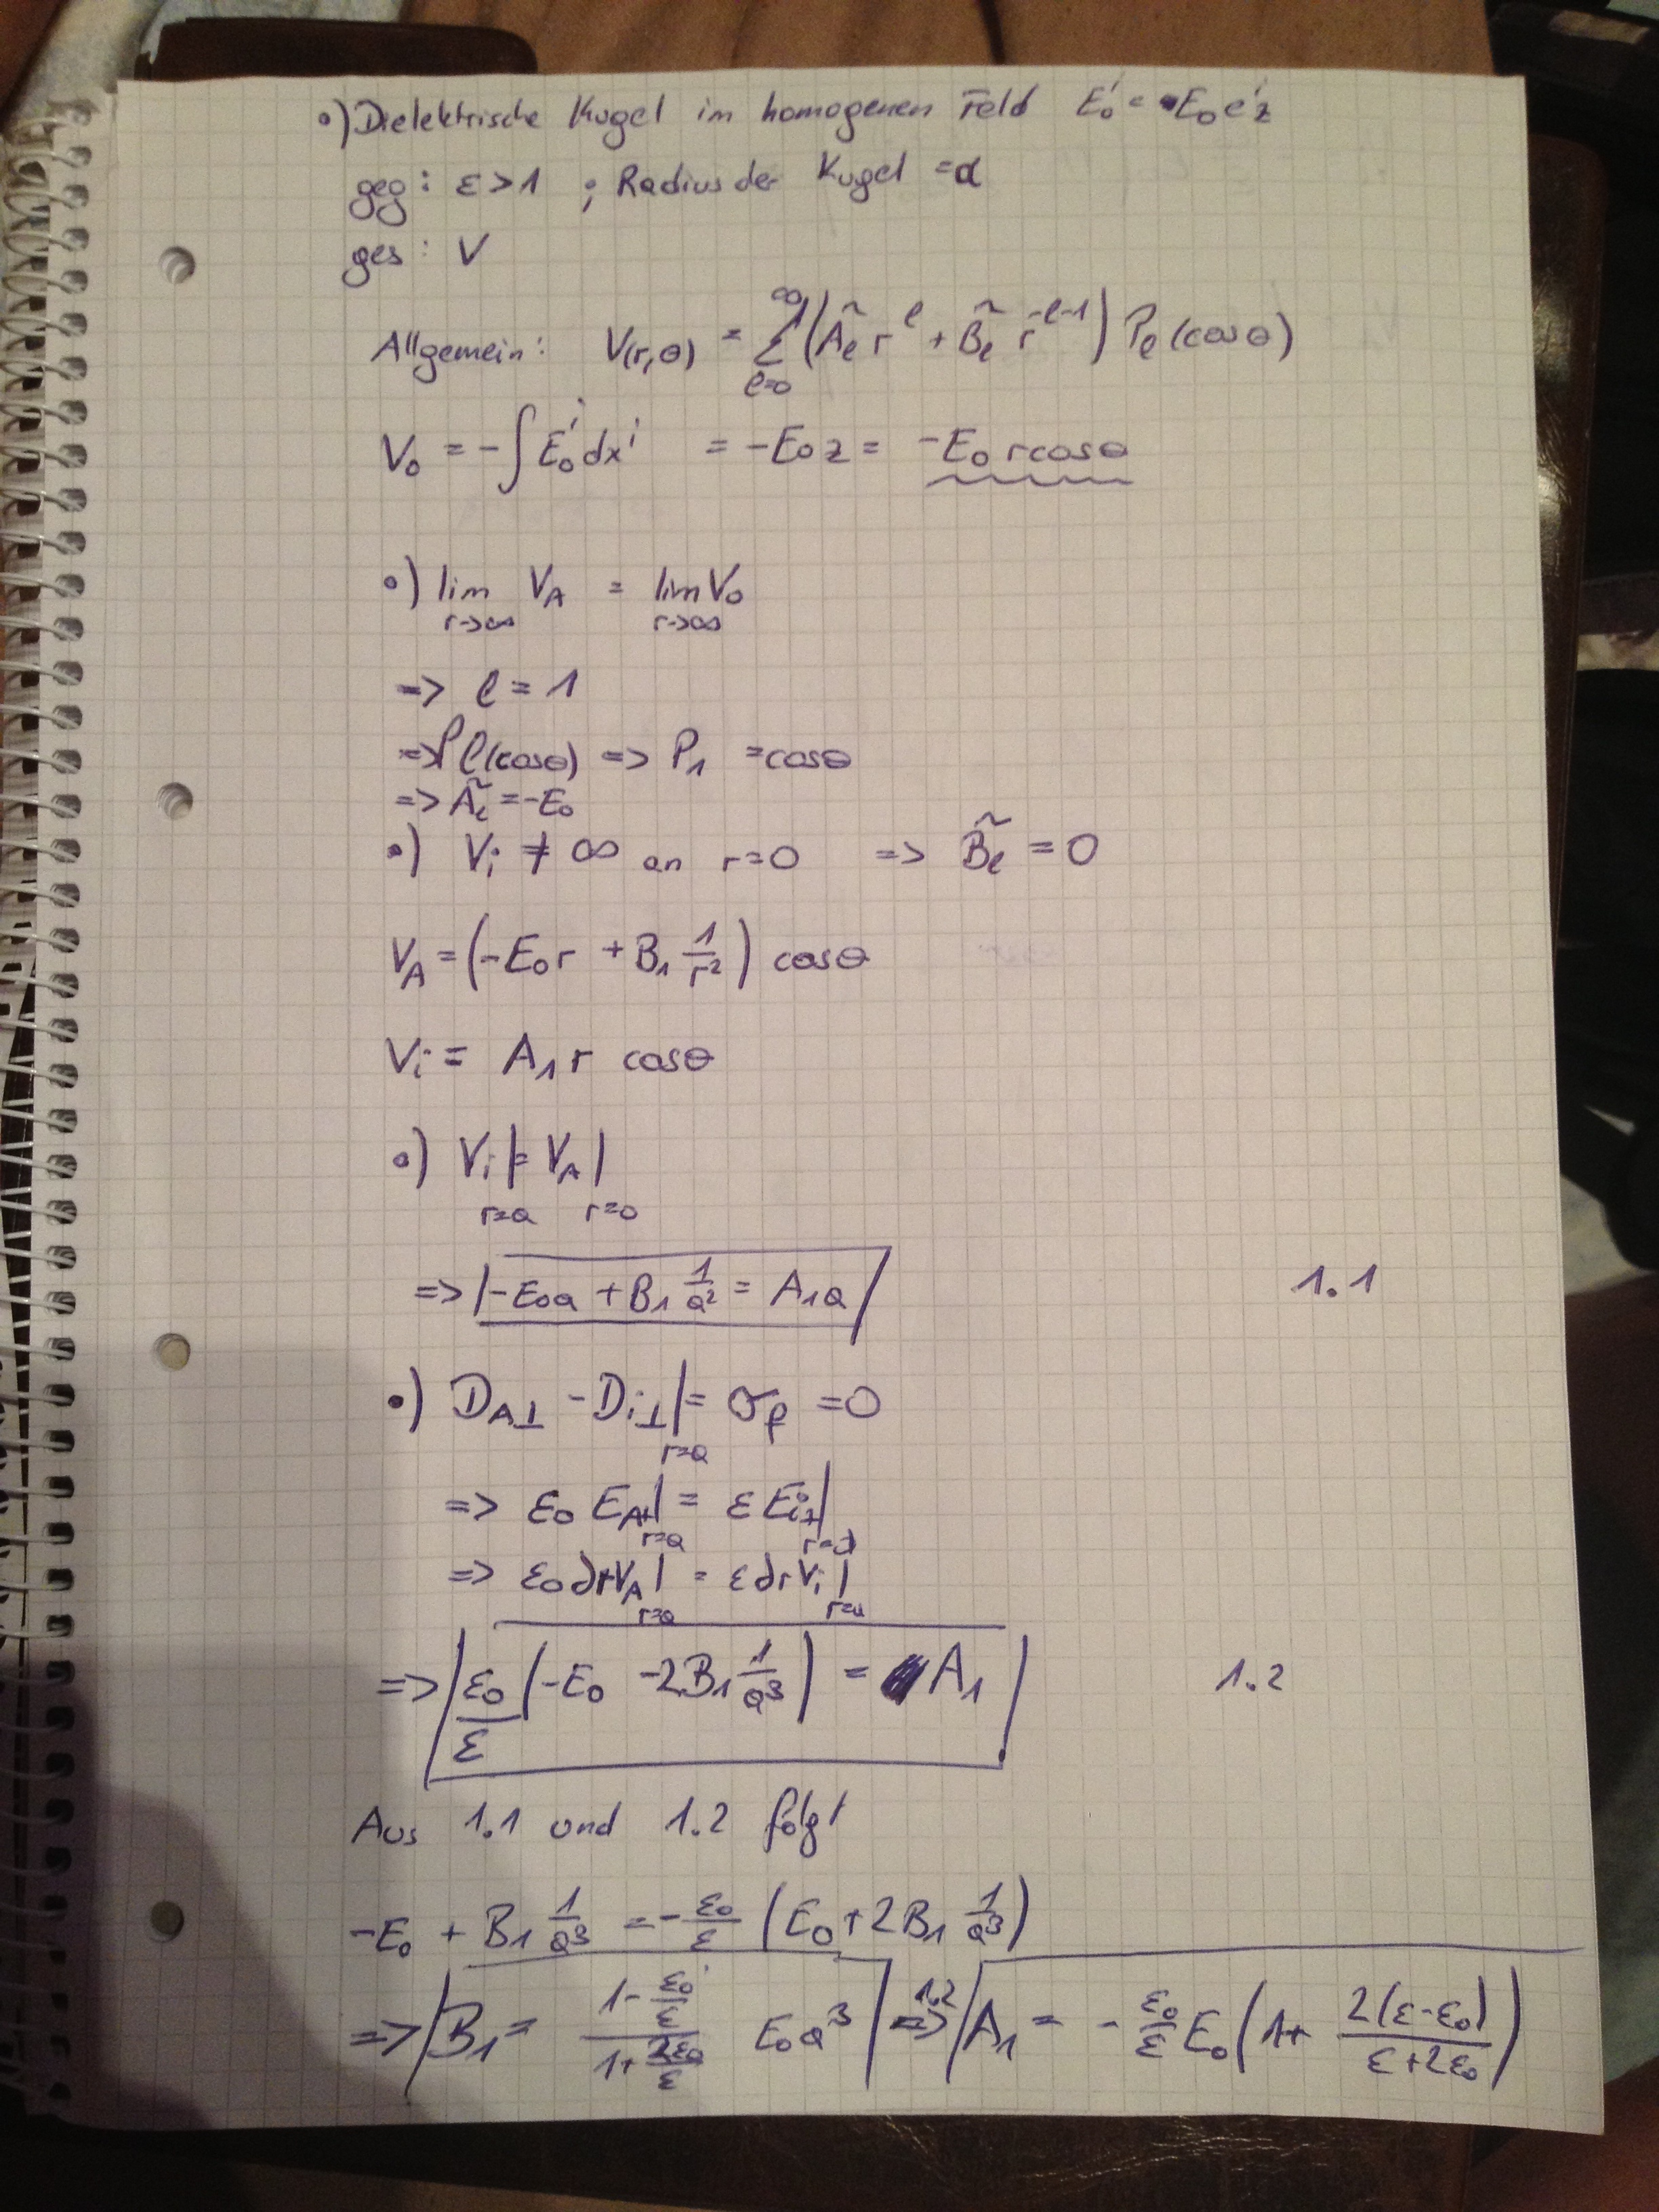 •) Dielektrische Kugel im homogenen Feld E₀ⁱ = E₀ eⁱz
geg: ε > 1 ; Radius der Kugel = a
ges: V
Allgemein: V(r,θ) = Σ_{ℓ=0}^{∞} (Ã_ℓ r^ℓ + B̃_ℓ r^{-ℓ-1}) P_ℓ (cosθ)
V₀ = -∫ E₀ⁱ dxⁱ = -E₀ z = -E₀ r cosθ
•) lim_{r->∞} V_A = lim_{r->∞} V₀
=> ℓ = 1
=> Pℓ(cosθ) => P₁ = cosθ
=> Ã_ℓ = -E₀
•) Vi ≠ ∞ an r=0 => B̃_ℓ = 0
V_A = (-E₀ r + B₁ 1/r²) cosθ
Vi = A₁ r cosθ
•) Vi|_{r=a} = V_A|_{r=0}
=> -E₀a + B₁ 1/a² = A₁a 1.1
•) D_{A⊥} - D_{i⊥}|_{r=a} = σ_f = 0
=> ε₀ E_{A⊥}|_{r=a} = ε E_{i⊥}|_{r=a}
=> ε₀ ∂r V_A|_{r=a} = ε ∂r Vi|_{r=a}
=> ε₀/ε (-E₀ - 2B₁ 1/a³) = A₁ 1.2
Aus 1.1 und 1.2 folgt
-E₀ + B₁ 1/a³ = -ε₀/ε (E₀ + 2B₁ 1/a³)
=> B₁ = (1 - ε₀/ε)/(1 + 2ε₀/ε) E₀a³ =>^{1.2} A₁ = -ε₀/ε E₀ (1 + 2(ε-ε₀)/(ε+2ε₀))